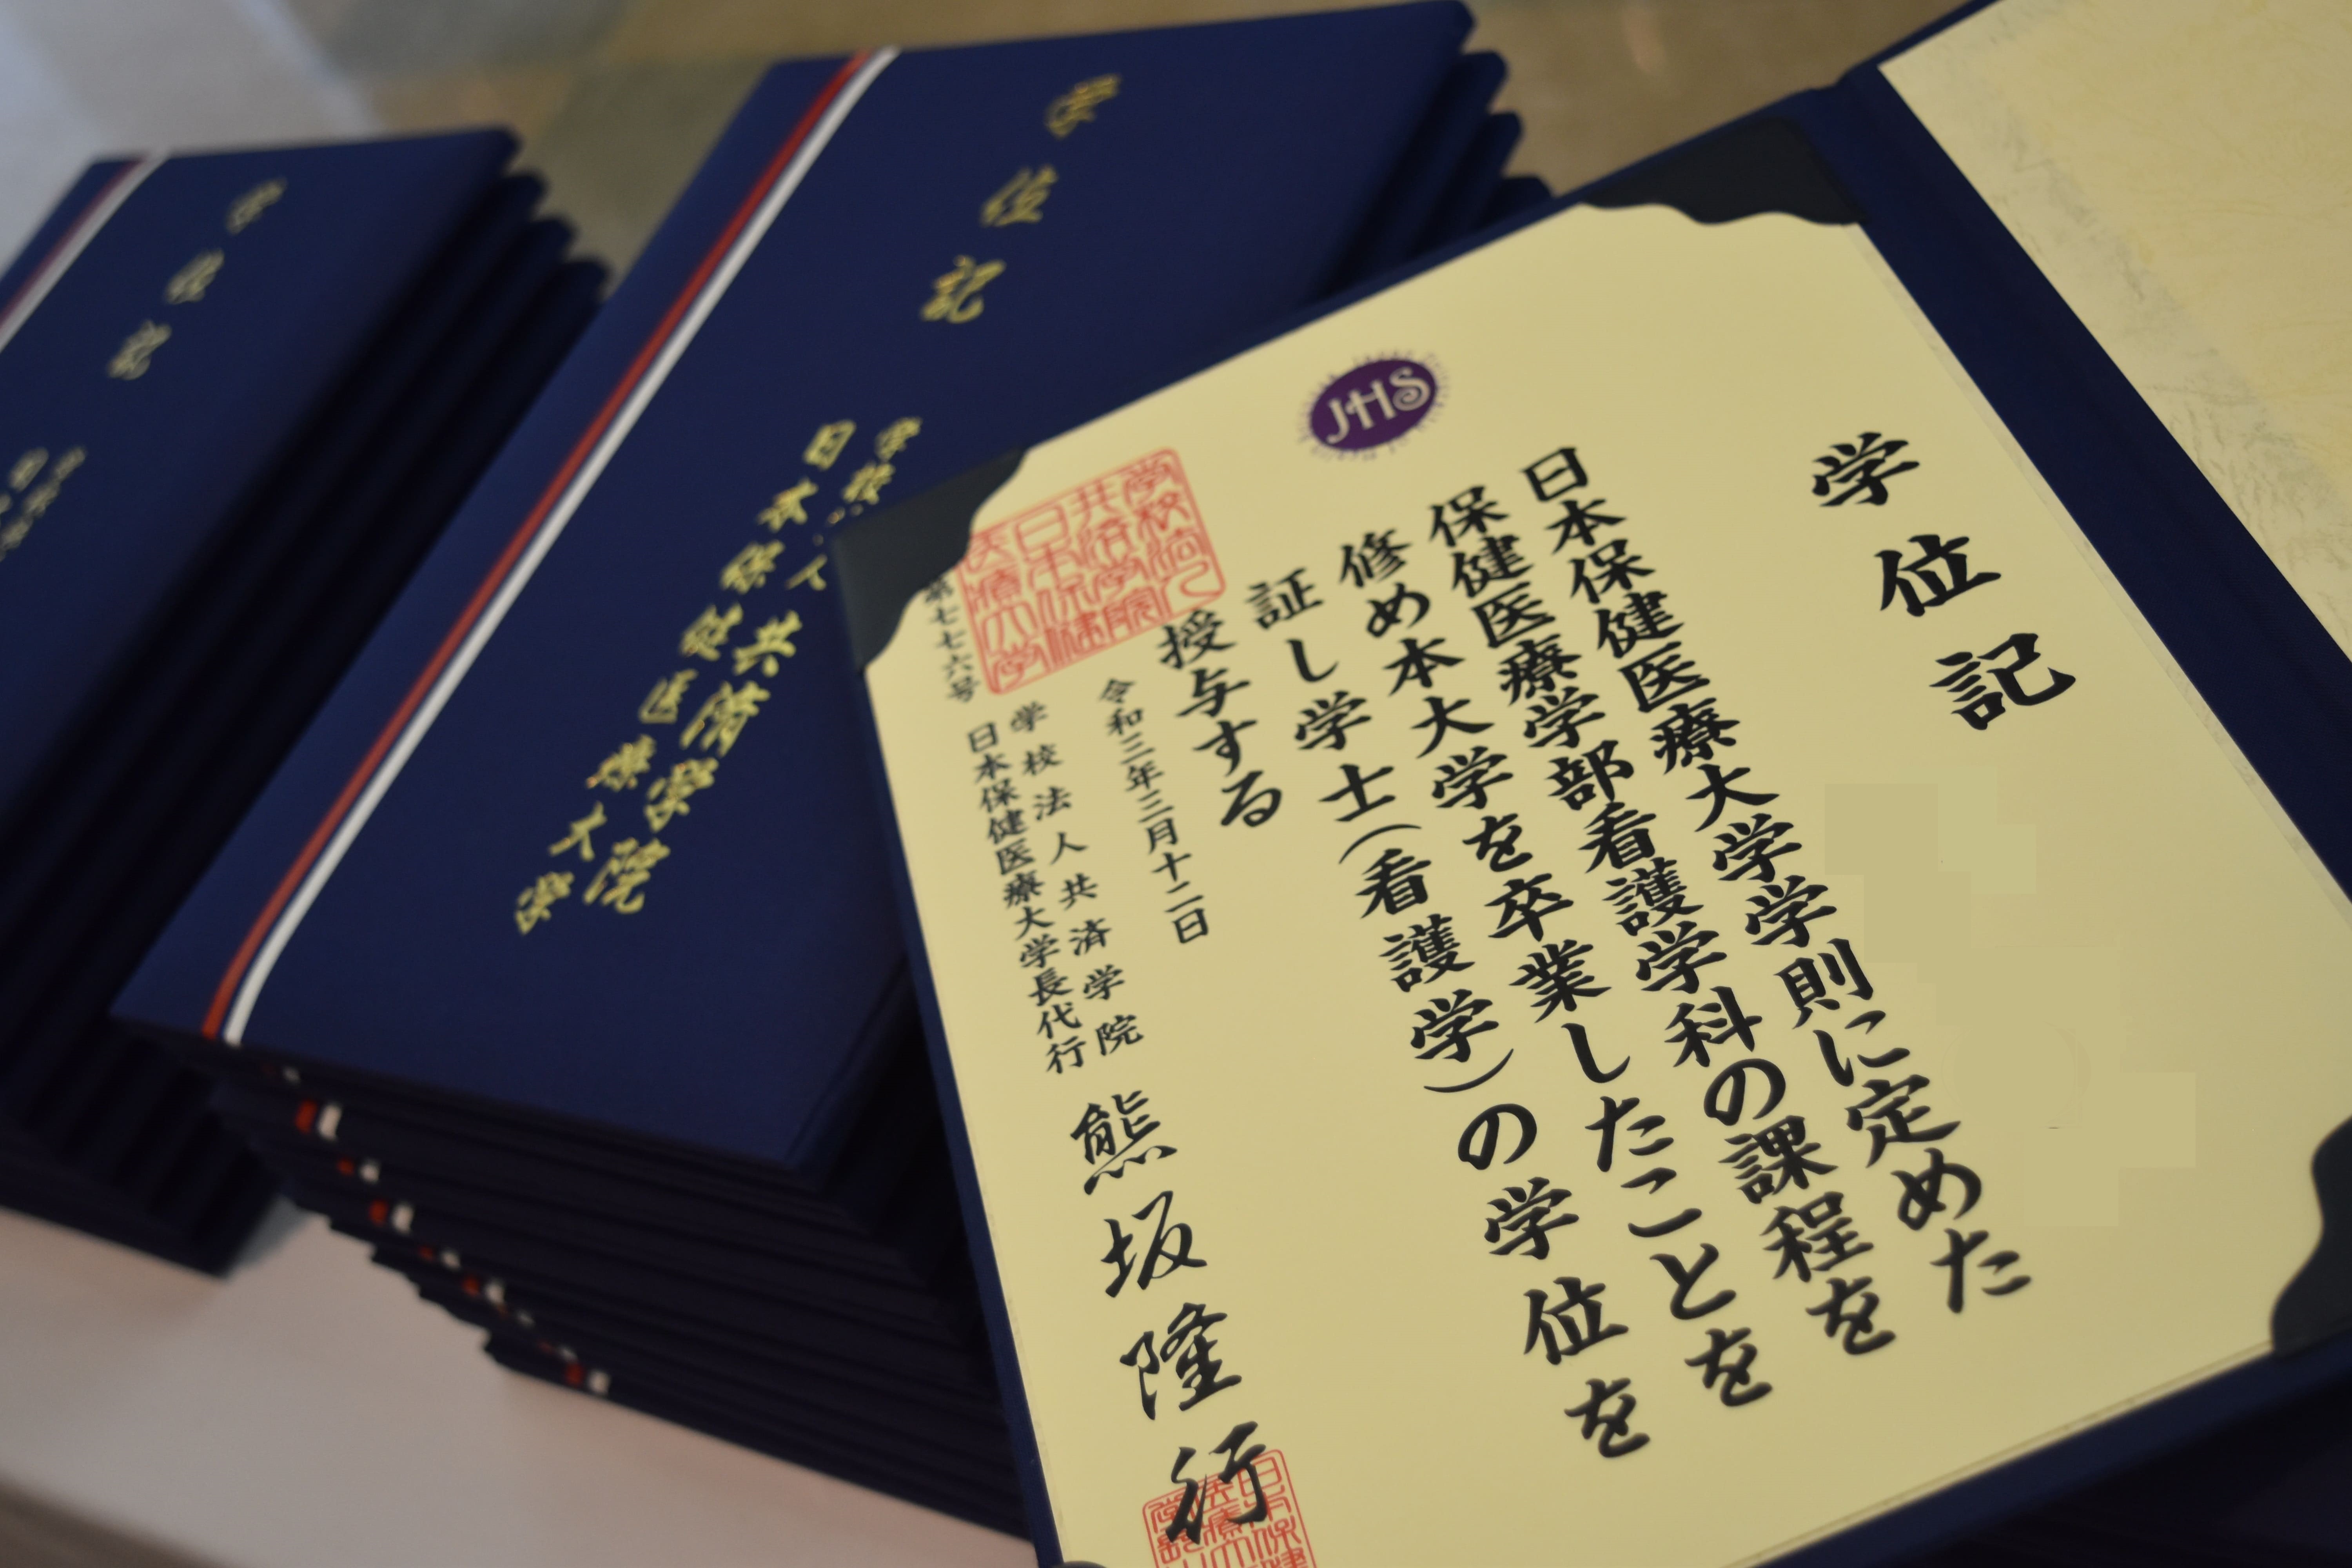 学位記
日本保健医療大学学則に定めた
保健医療学部看護学科の課程を
修め本大学を卒業したことを
証し学士(看護学)の学位を
授与する
令和三年三月十二日
学校法人共済学院
日本保健医療大学長代行
熊坂隆行
第七七六号
JHS
学校法人
共済学院
日本保健
医療大学
学位記
学校法人 共済学院
日本保健医療大学
学位記